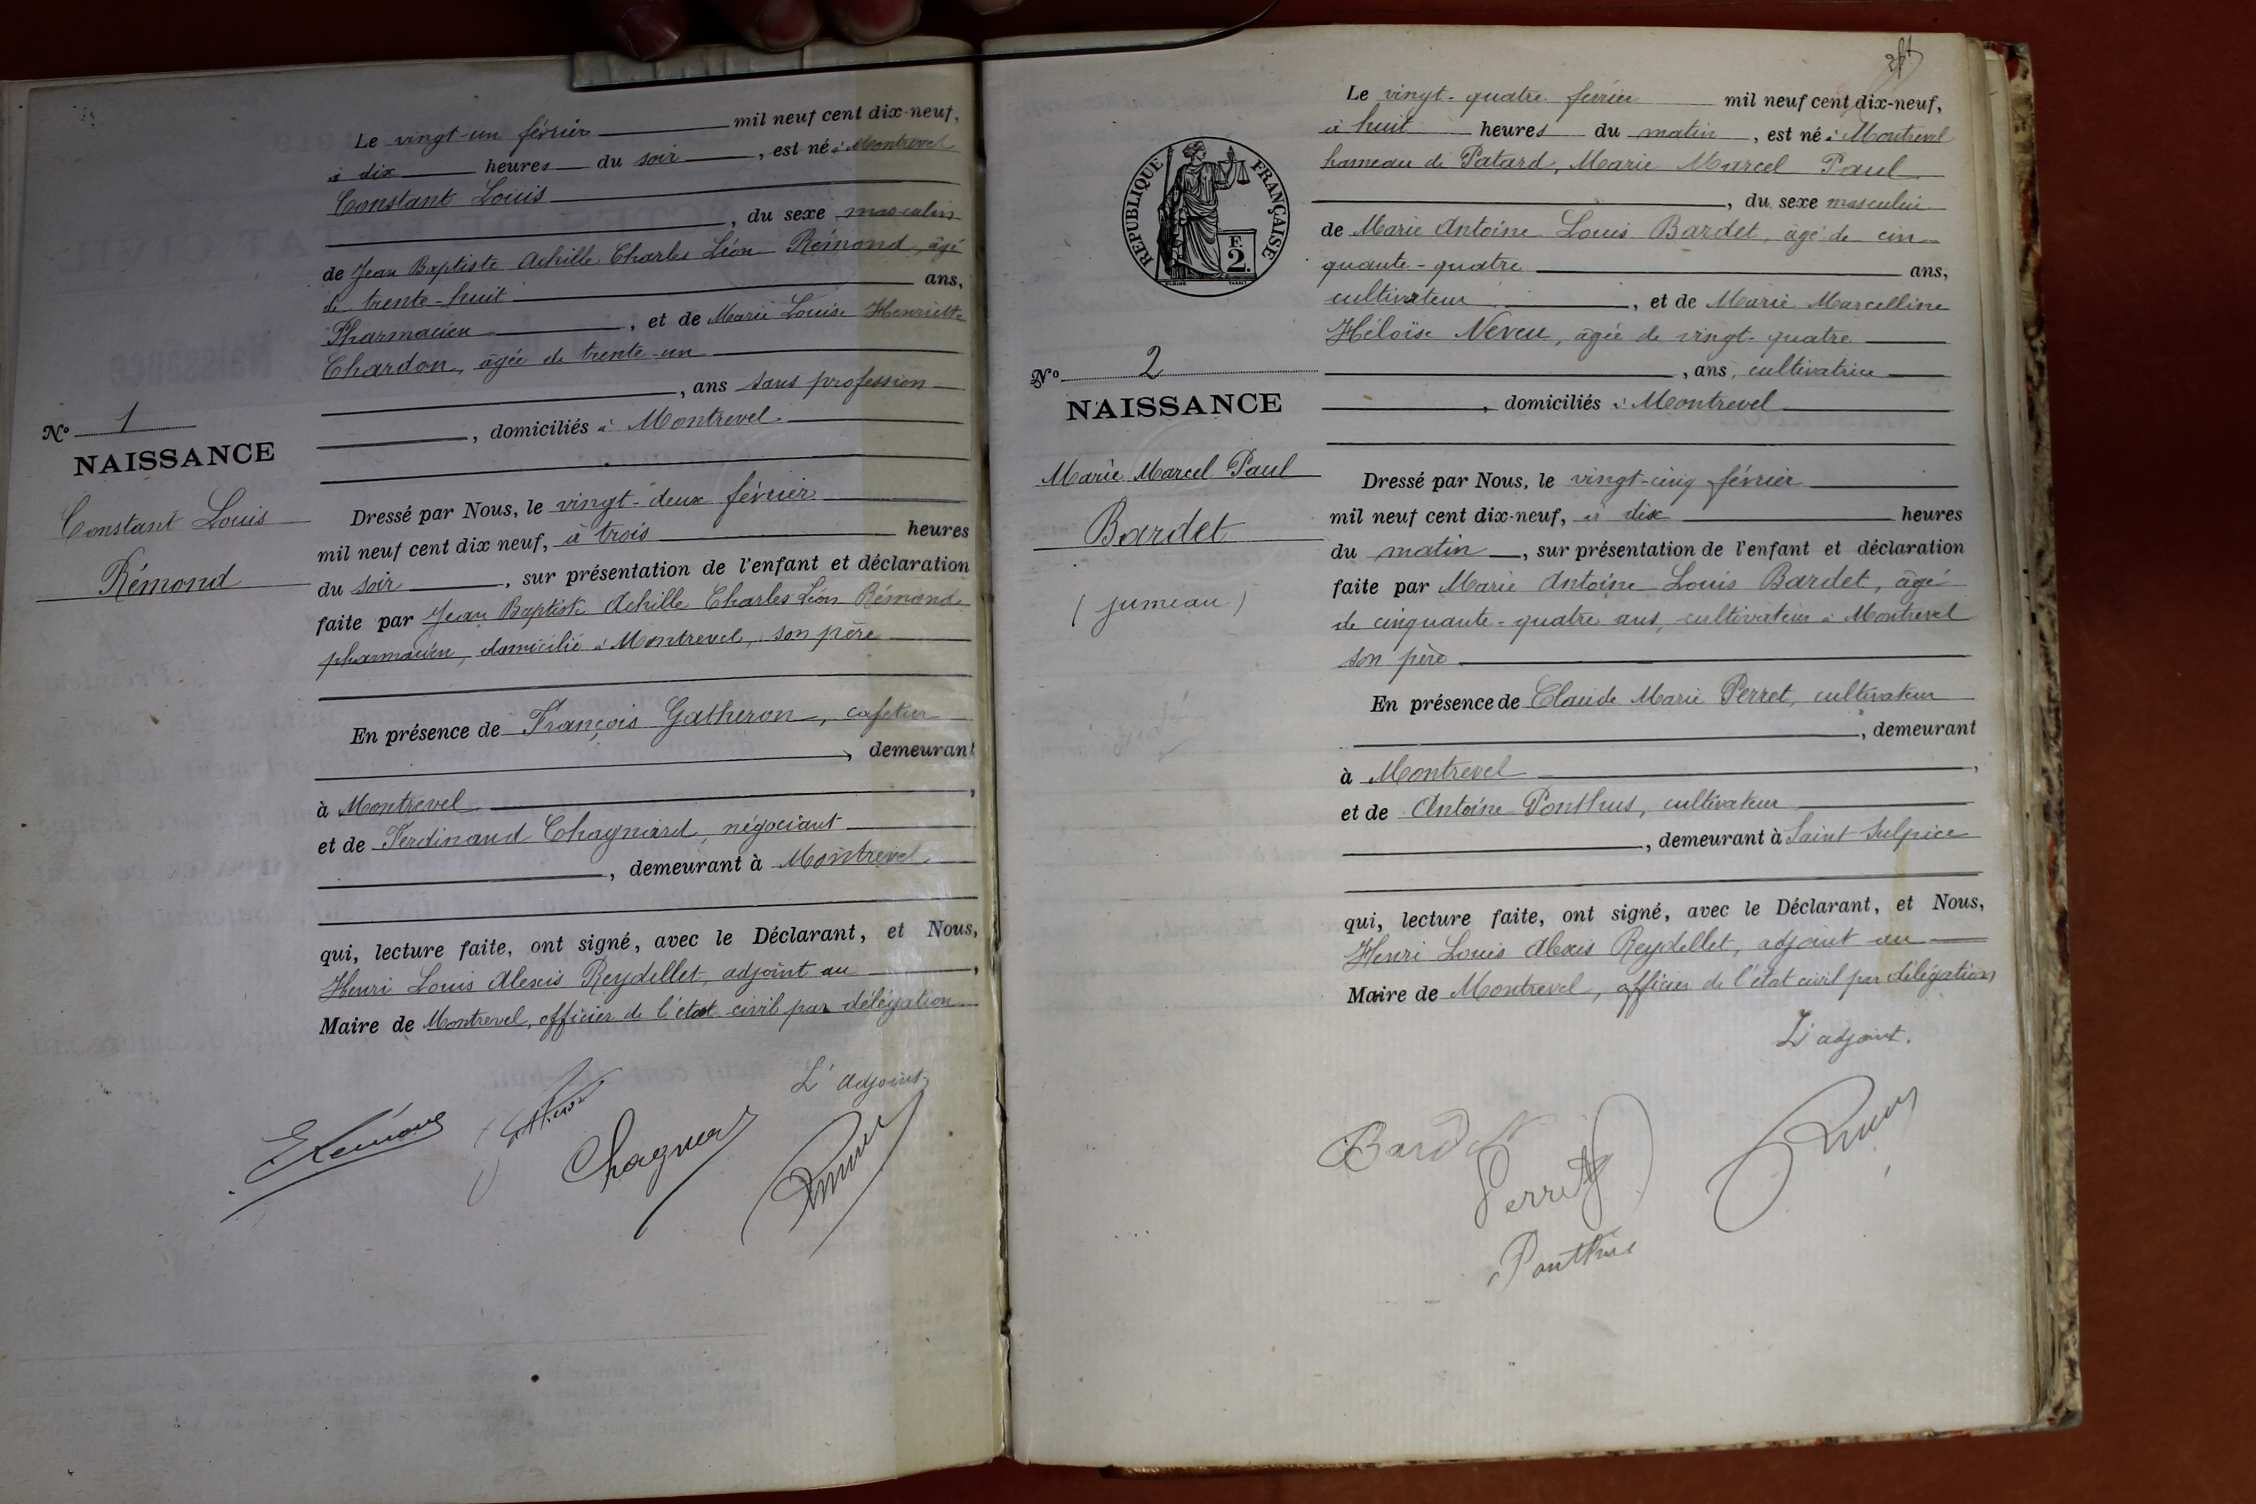 Le vingt-un février mil neuf cent dix-neuf,
à dix heures du soir, est né à Montrevel
Constant Louis
, du sexe masculin
de Jean Baptiste Achille Charles Léon Rémond, âgé
de trente-huit ans,
Pharmacien, et de Marie Louise Henriette
Chardon, âgée de trente-un
, ans sans profession
, domiciliés à Montrevel.
N° 1
NAISSANCE
Constant Louis
Rémond
Dressé par Nous, le vingt-deux février
mil neuf cent dix neuf, à trois heures
du soir, sur présentation de l'enfant et déclaration
faite par Jean Baptiste Achille Charles Léon Rémond
pharmacien, domicilié à Montrevel, son père
En présence de François Gatheron, cafetier
, demeurant
à Montrevel,
et de Ferdinand Chagnard, négociant
, demeurant à Montrevel
qui, lecture faite, ont signé, avec le Déclarant, et Nous,
Henri Louis Alexis Reydellet, adjoint au,
Maire de Montrevel, officier de l'état civil par délégation
L'adjoint
Rémond
Chagnard
RÉPUBLIQUE FRANÇAISE
F.
2.
N° 2
NAISSANCE
Marie Marcel Paul
Bardet
(jumeau)
Le vingt-quatre février mil neuf cent dix-neuf,
à huit heures du matin, est né à Montrevel
hameau de Patard, Marie Marcel Paul
, du sexe masculin
de Marie Antoine Louis Bardet, âgé de cin-
quante-quatre ans,
cultivateur, et de Marie Marcelline
Héloïse Neveu, âgée de vingt-quatre
, ans, cultivatrice
, domiciliés à Montrevel
Dressé par Nous, le vingt-cinq février
mil neuf cent dix-neuf, à dix heures
du matin, sur présentation de l'enfant et déclaration
faite par Marie Antoine Louis Bardet, âgé
de cinquante-quatre ans, cultivateur à Montrevel
son père
En présence de Claude Marie Perret, cultivateur
, demeurant
à Montrevel,
et de Antoine Ponthus, cultivateur
, demeurant à Saint Sulpice
qui, lecture faite, ont signé, avec le Déclarant, et Nous,
Henri Louis Alexis Reydellet, adjoint au
Maire de Montrevel, officier de l'état civil par délégation
L'adjoint.
Bardet
Perret
Ponthus